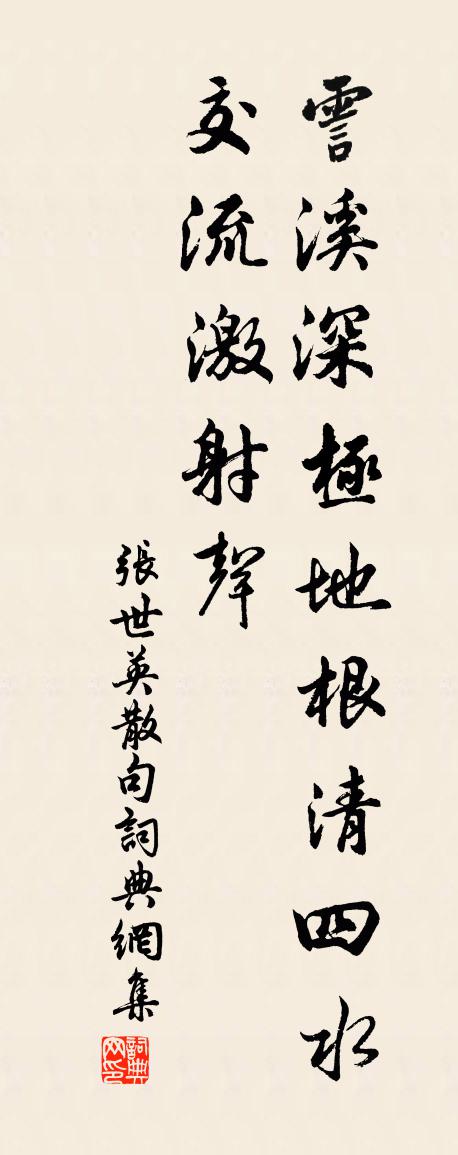 霅溪深極地根清四水
交流激射聲
張世英散句詞典網集
詞典网印